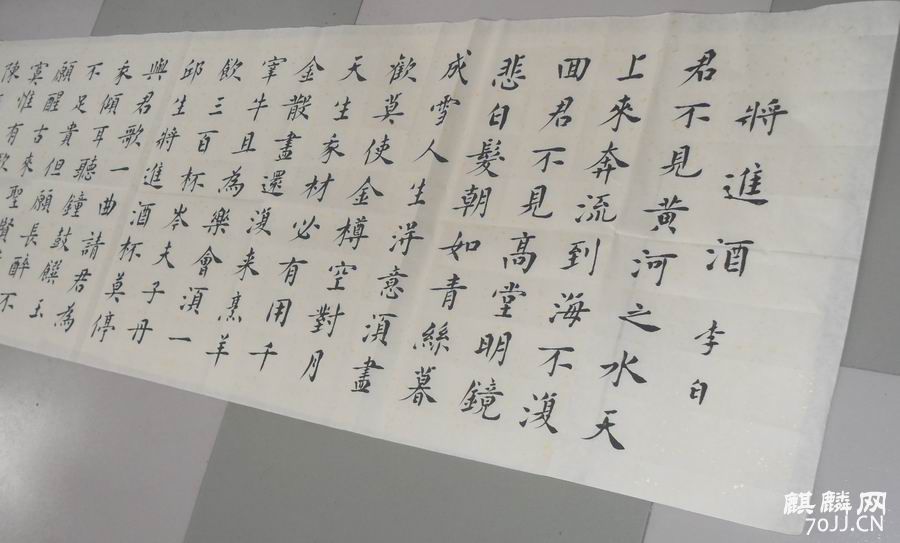 將進酒 李白
君不見黃河之水天
上來奔流到海不復
回君不見高堂明鏡
悲白髮朝如青絲暮
成雪人生淂意須盡
歡莫使金樽空對月
天生我材必有用千
金散盡還復來烹羊
宰牛且為樂會須一
飲三百杯岑夫子丹
邱生將進酒杯莫停
與君歌一曲請君為
我傾耳聽鐘鼓饌玉
不足貴但願長醉不
願醒古來聖賢
寞惟有
陳
麒麟网
70JJ.CN